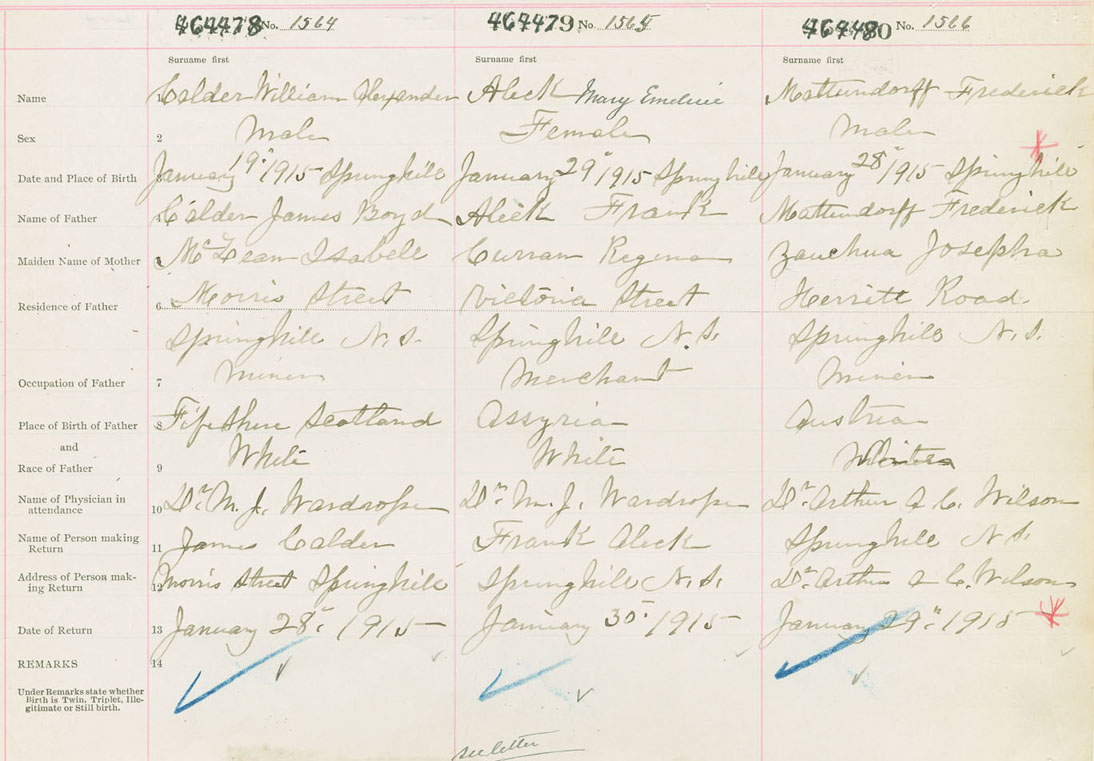 464478 No. 1564 464479 No. 1565 464480 No. 1566
Surname first Surname first Surname first
Name 1 Calder William Alexander Aleck Mary Emeline Mattundorff Frederick
Sex 2 Male Female Male
Date and Place of Birth January 19" 1915 Springhill January 29" 1915 Springhill January 28" 1915 Springhill
Name of Father Calder James Boyd Aleck Frank Mattundorff Frederick
Maiden Name of Mother McLean Isabele Curran Regena Zauchua Josepha
Residence of Father 6 Morris Street Victoria Street Herritt Road
Springhill N.S. Springhill N.S. Springhill N.S.
Occupation of Father 7 Miner Merchant Miner
Place of Birth of Father 8 Fifeshire Scotland Assyria Austria
and
Race of Father 9 White White White
Name of Physician in
attendance 10 Dr. M. J. Wardrope Dr. M. J. Wardrope Dr. Arthur & C. Wilson
Name of Person making
Return 11 James Calder Frank Aleck Springhill N.S.
Address of Person mak-
ing Return 12 Morris Street Springhill Springhill N.S. Dr. Arthur & C. Wilson
Date of Return 13 January 28" 1915 January 30" 1915 January 29" 1915
REMARKS 14
Under Remarks state whether
Birth is Twin, Triplet, Ille-
gitimate or Still birth.
see letter